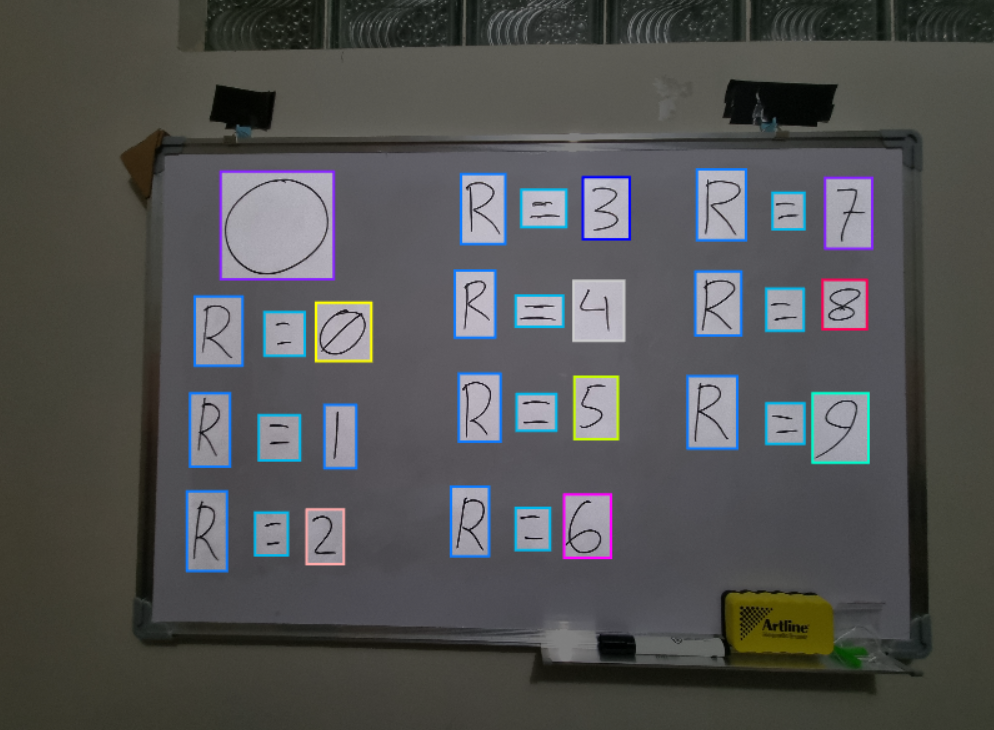 R = 0
R = 1
R = 2
R = 3
R = 4
R = 5
R = 6
R = 7
R = 8
R = 9
Artline